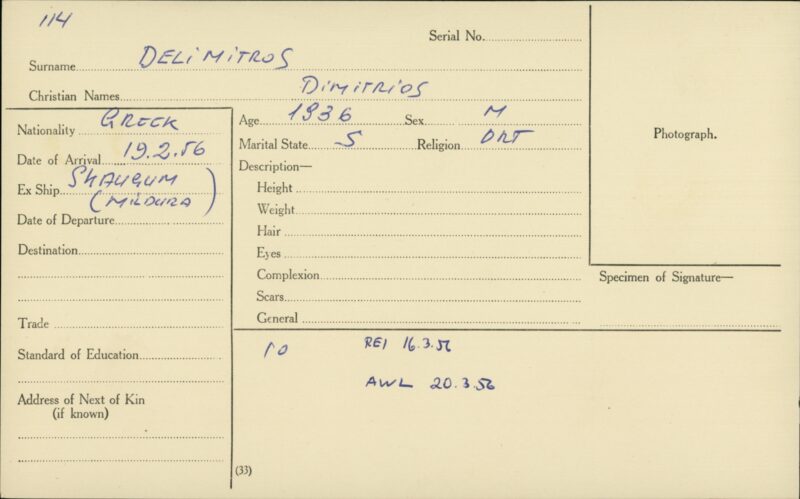 114
Serial No.
Surname DELIMITROS
Christian Names DIMITRIOS
Nationality GREEK
Date of Arrival 19.2.56
Ex Ship SKAUGUM
(MILDURA)
Date of Departure
Destination
Trade
Standard of Education
Address of Next of Kin
(if known)
Age 1936 Sex M
Marital State S Religion ORT
Description—
Height
Weight
Hair
Eyes
Complexion
Scars
General
10 REI 16.3.56
AWL 20.3.56
(33)
Photograph.
Specimen of Signature—